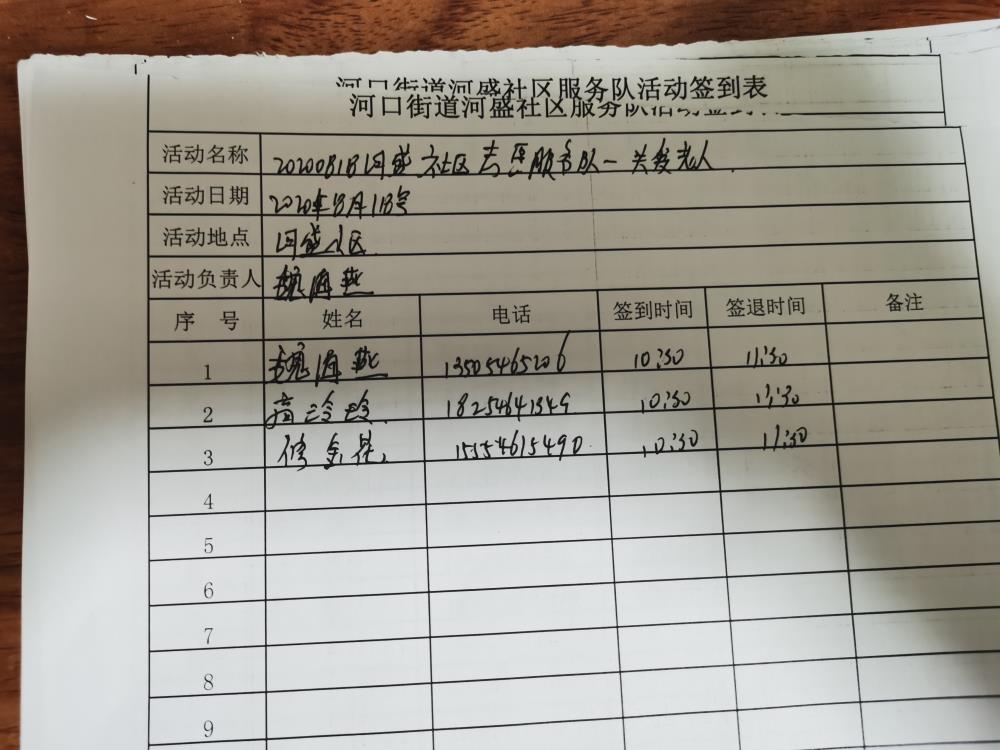 河口街道河盛社区服务队活动签到表
河口街道河盛社区服务队活动签到表
活动名称 20200818河盛社区志愿服务队一关爱老人
活动日期 2020年8月18号
活动地点 河盛社区
活动负责人 魏海燕
序 号 姓名 电话 签到时间 签退时间 备注
1 魏海燕 13505465206 10:30 11:30
2 高玲玲 18254641349 10:30 11:30
3 15554615490 10:30 11:30
4
5
6
7
8
9